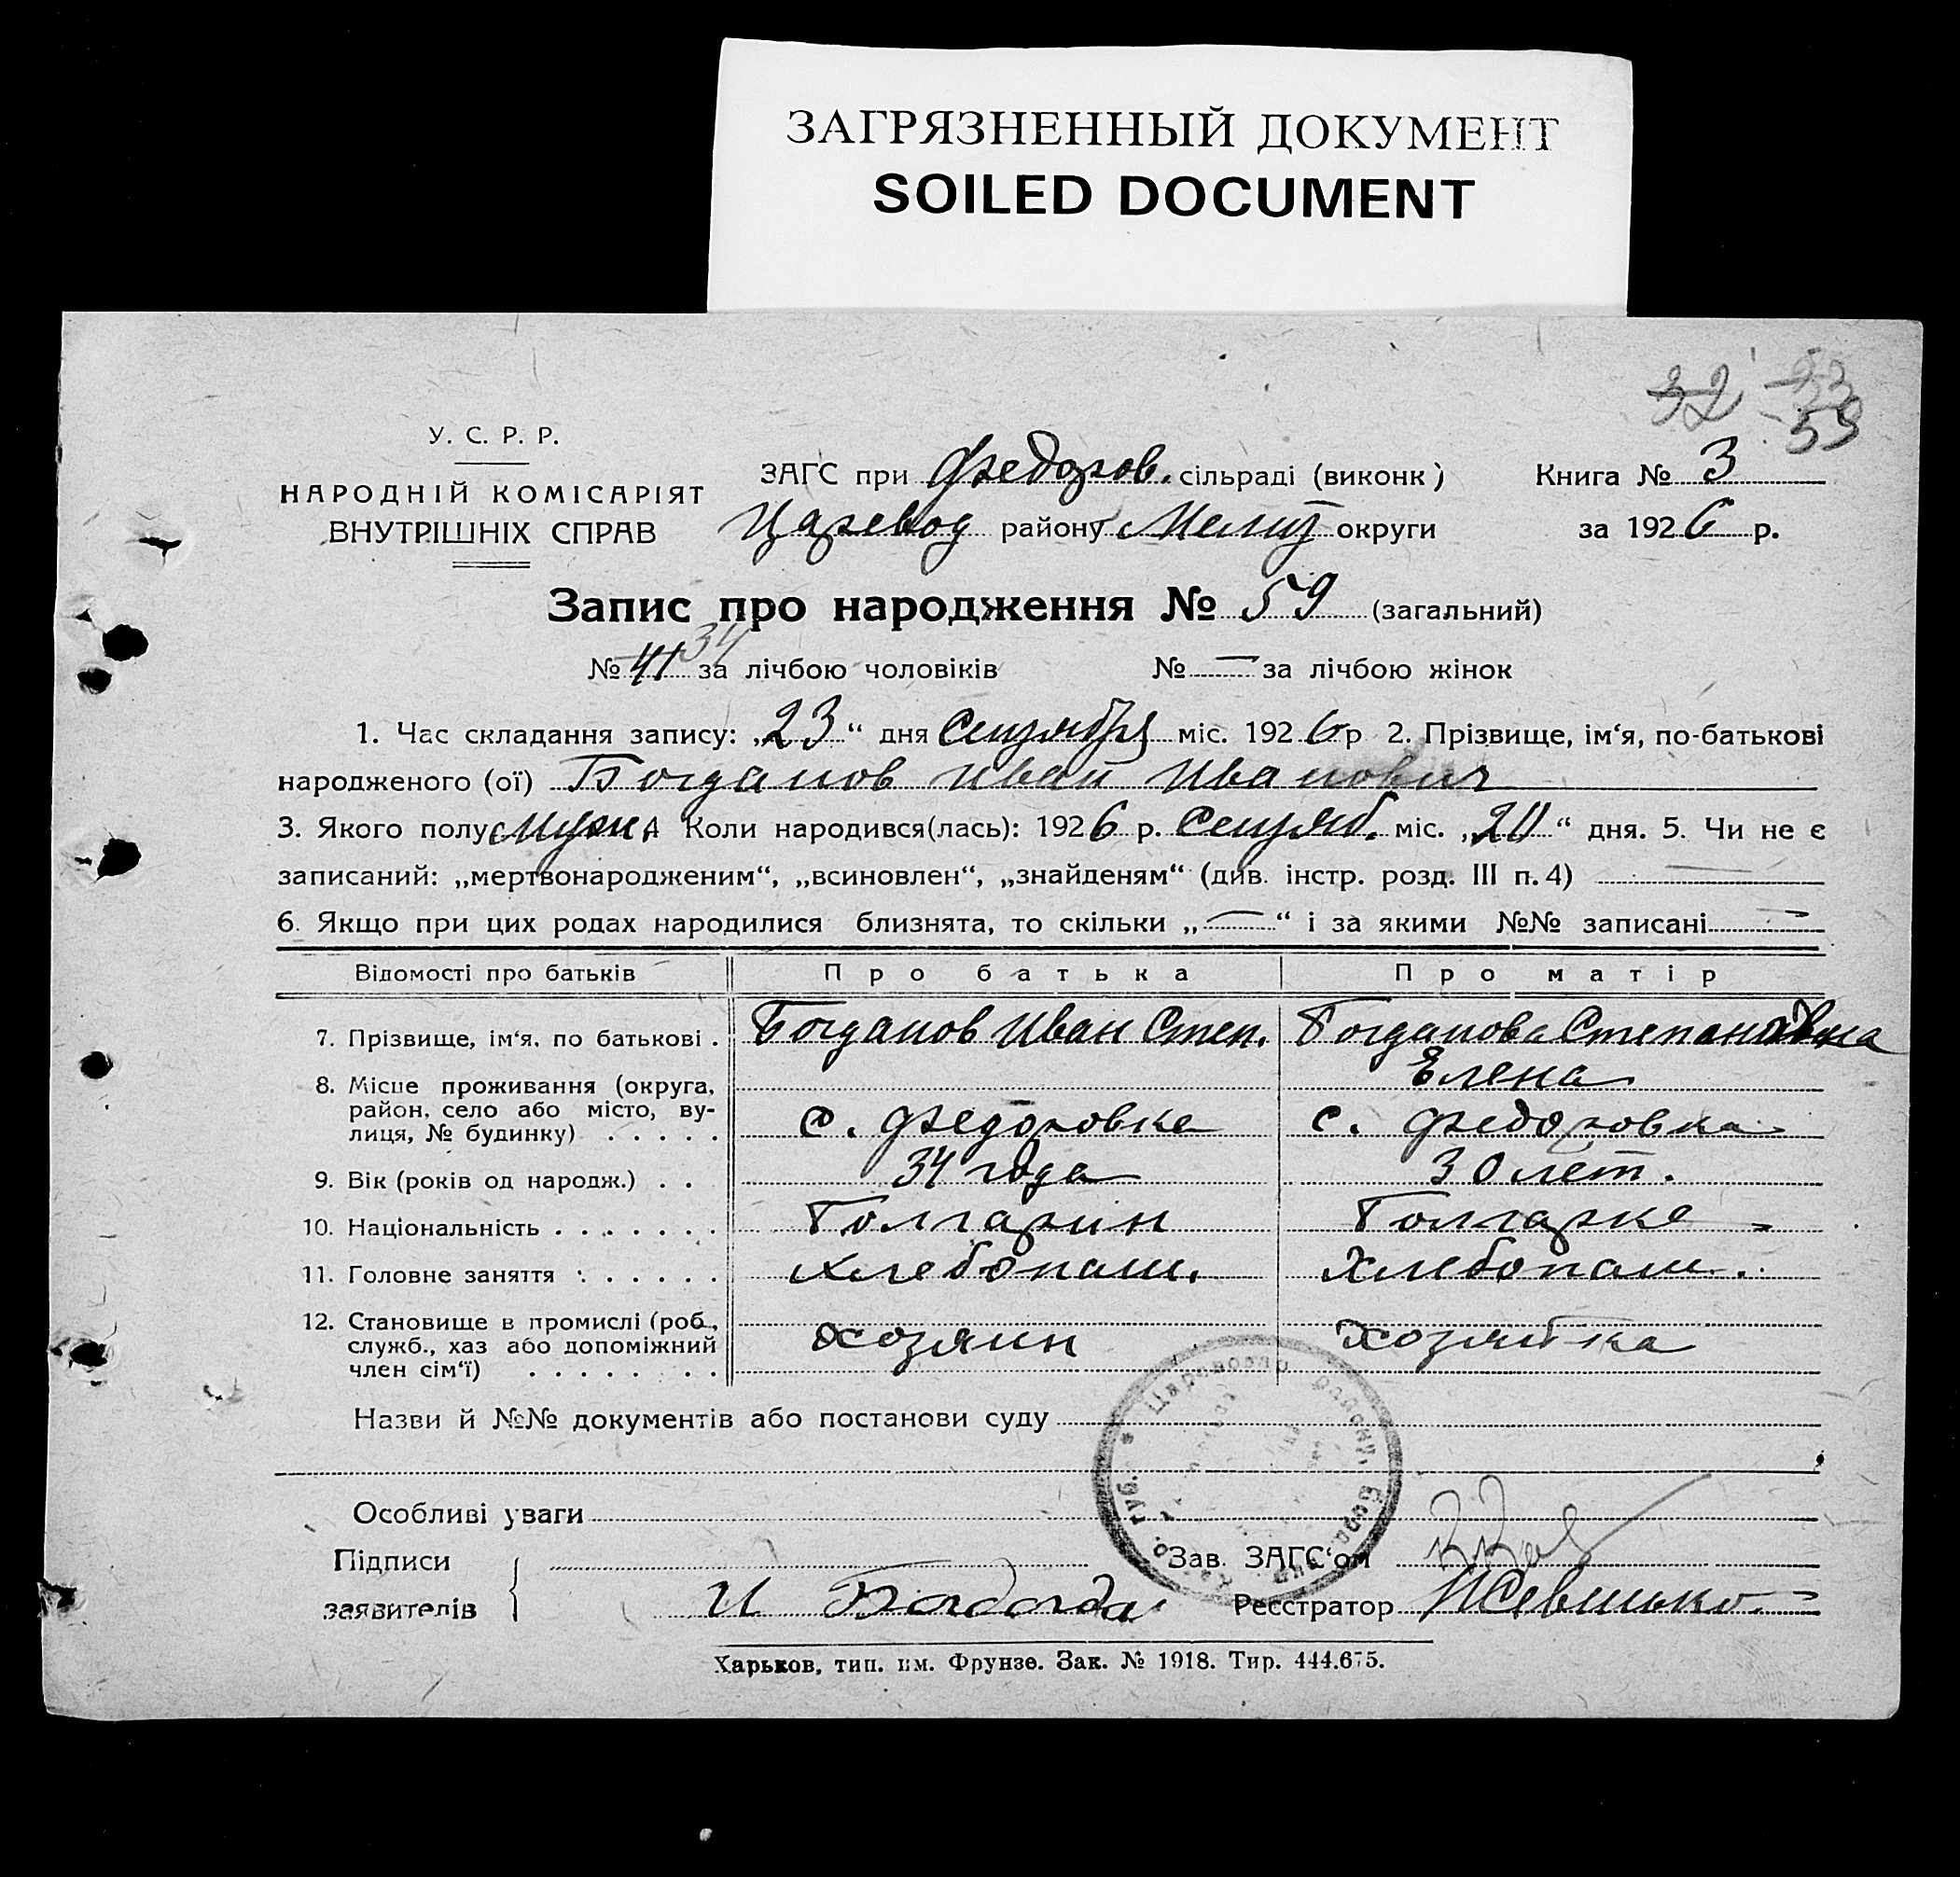 ЗАГРЯЗНЕННЫЙ ДОКУМЕНТ
SOILED DOCUMENT
32 53
У. С. Р. Р.
НАРОДНІЙ КОМІСАРІЯТ
ВНУТРІШНІХ СПРАВ
ЗАГС при Федоров. сільраді (виконк)
Царевод району Мелит округи
Книга № 3
за 1926 р.
Запис про народження № 59 (загальний)
№ 41 34 за лічбою чоловіків № — за лічбою жінок
1. Час складання запису: „23“ дня Сентября міс. 1926 р 2. Прізвище, ім‘я, по-батькові
народженого (ої) Богданов Иван Иванович
3. Якого полу мужч. 4 Коли народився(лась): 1926 р. Сентяб. міс. „20“ дня. 5. Чи не є
записаний: „мертвонародженим“, „всиновлен“, „знайденям“ (див. інстр. розд. III п. 4) —
6. Якщо при цих родах народилися близнята, то скільки „—“ і за якими №№ записані —
Відомості про батьків Про батька Про матір
7. Прізвище, ім‘я, по батькові . Богданов Иван Степ. Богданова Степановна
Елена
8. Місце проживання (округа,
район, село або місто, ву-
лиця, № будинку) . . . . . с. Федоровка с. Федоровка
9. Вік (років од народж.) . . 34 года 30 лет.
10. Національність . . . . . . . Болгарин Болгарка
11. Головне заняття . . . . . . Хлебопаш. Хлебопаш.
12. Становище в промислі (роб.,
служб., хаз або допоміжний
член сім‘ї) . . . . . . . . хозяин хозяйка
Назви й №№ документів або постанови суду
Особливі уваги
Підписи
заявителів
И
Зав. ЗАГС‘ом
Реєстратор
Харьков, тип. им. Фрунзе. Зак. № 1918. Тир. 444.675.